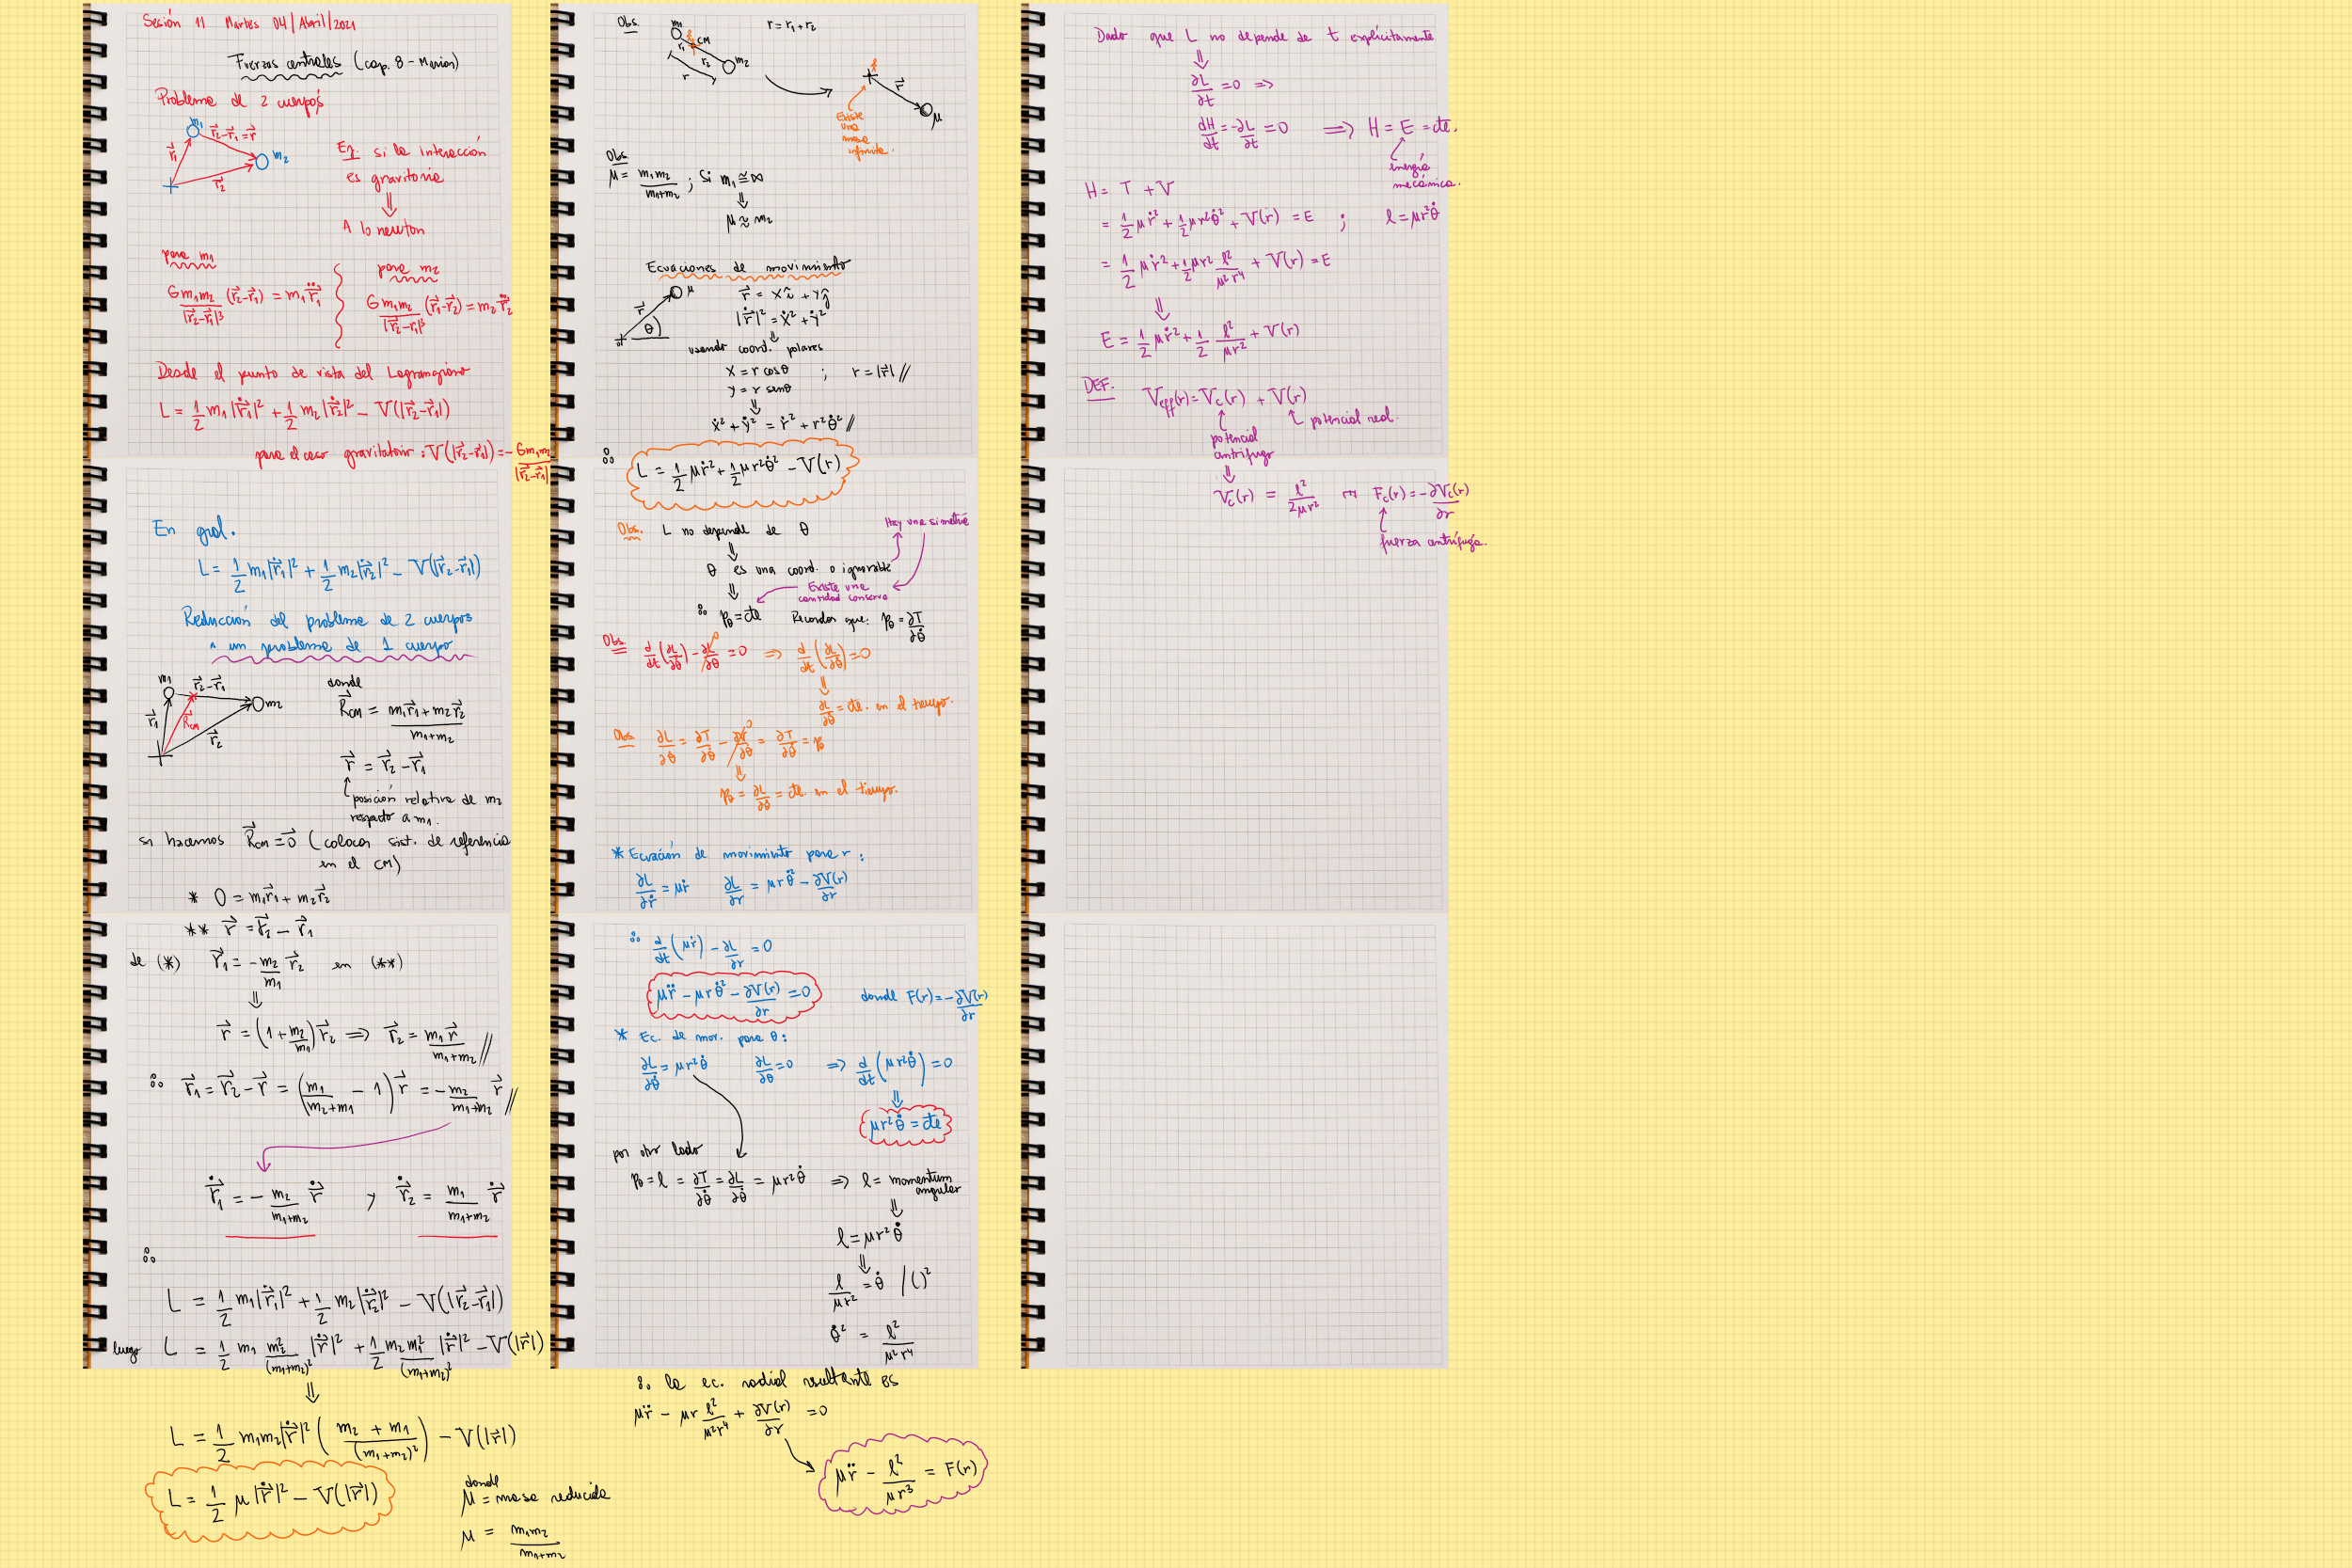 Sesión 11 Martes 04/Abril/2021
Fuerzas centrales (cap. 8 - Marion)
Problema de 2 cuerpos
m₁
r⃗₂-r⃗₁=r⃗
r⃗₁
m₂
r⃗₂
Ej. si la interacción
es gravitoria
⇓
A lo newton
para m₁
Gm₁m₂/|r⃗₂-r⃗₁|³ (r⃗₂-r⃗₁) = m₁r⃗̈₁
para m₂
Gm₁m₂/|r⃗₂-r₁|³ (r⃗₁-r⃗₂) = m₂r⃗̈₂
Desde el punto de vista del Lagrangiano
L = 1/2 m₁|r⃗̇₁|² + 1/2 m₂|r⃗̇₂|² - V(|r⃗₂-r⃗₁|)
para el caso gravitatorio: V(|r⃗₂-r⃗₁|) = - Gm₁m₂/|r⃗₂-r⃗₁|
En gral.
L = 1/2 m₁|r⃗̇₁|² + 1/2 m₂|r⃗̇₂|² - V(|r⃗₂-r⃗₁|)
Reducción del problema de 2 cuerpos
a un problema de 1 cuerpo
m₁
r⃗₂-r⃗₁
m₂
r⃗₁
R⃗cm
r⃗₂
donde
R⃗cm = m₁r⃗₁+m₂r⃗₂/m₁+m₂
r⃗ = r⃗₂-r⃗₁
posición relativa de m₂
respecto a m₁.
si hacemos R⃗cm=0⃗ (colocar sist. de referencia
en el CM)
* 0 = m₁r⃗₁+m₂r⃗₂
** r⃗ = r⃗₂ - r⃗₁
de (*) r⃗₁ = -m₂/m₁ r⃗₂ en (**)
⇓
r⃗ = (1+m₂/m₁)r⃗₂ ⇒ r⃗₂ = m₁r⃗/m₁+m₂ //
∴ r⃗₁ = r⃗₂-r⃗ = (m₁/m₂+m₁ - 1)r⃗ = -m₂/m₁+m₂ r⃗ //
r⃗̇₁ = - m₂/m₁+m₂ r⃗̇ y r⃗̇₂ = m₁/m₁+m₂ r⃗̇
∴
L = 1/2 m₁|r⃗̇₁|² + 1/2 m₂|r⃗̇₂|² - V(|r⃗₂-r⃗₁|)
luego L = 1/2 m₁ m₂²/(m₁+m₂)² |r⃗̇|² + 1/2 m₂m₁²/(m₁+m₂)² |r⃗̇|² - V(|r⃗|)
⇓
L = 1/2 m₁m₂|r⃗̇|² (m₂ + m₁/(m₁+m₂)²) - V(|r⃗|)
L = 1/2 μ|r⃗̇|² - V(|r⃗|)
donde
μ = masa reducida
μ = m₁m₂/m₁+m₂
Obs.
m₁
r₁
CM
r₂
m₂
r
r = r₁+r₂
r⃗
μ
Existe
una
masa
infinita.
Obs.
μ = m₁m₂/m₁+m₂ ; Si m₁ ≅ ∞
⇓
μ ≈ m₂
Ecuaciones de movimiento
μ
r⃗
θ
r⃗ = xî + yĵ
|r⃗̇|² = ẋ² + ẏ²
usando coord. polares
x = r cosθ ; r = |r⃗| //
y = r senθ
⇓
ẋ² + ẏ² = ṙ² + r²θ̇² //
∴ L = 1/2 μṙ² + 1/2 μr²θ̇² - V(r)
Obs. L no depende de θ
Hay una simetría
⇓
θ es una coord. o ignorable
⇓
Existe una
cantidad conserva
∴ pθ = cte Recordar que: pθ = ∂T/∂θ̇
Obs d/dt(∂L/∂θ̇) - ∂L/∂θ = 0 ⇒ d/dt(∂L/∂θ̇) = 0
0
⇓
∂L/∂θ̇ = cte. en el tiempo.
Obs ∂L/∂θ̇ = ∂T/∂θ̇ - ∂V/∂θ̇ = ∂T/∂θ̇ = pθ
0
⇓
pθ = ∂L/∂θ̇ = cte. en el tiempo.
* Ecuación de movimiento para r:
∂L/∂ṙ = μṙ ∂L/∂r = μrθ̇² - ∂V(r)/∂r
∴ d/dt(μṙ) - ∂L/∂r = 0
μr̈ - μrθ̇² - ∂V(r)/∂r = 0 donde F(r) = -∂V(r)/∂r
* Ec. de mov. para θ:
∂L/∂θ̇ = μr²θ̇ ∂L/∂θ = 0 ⇒ d/dt(μr²θ̇) = 0
⇓
μr²θ̇ = cte
por otro lado
pθ = l = ∂T/∂θ̇ = ∂L/∂θ̇ = μr²θ̇ ⇒ l = momentum
angular
⇓
l = μr²θ̇
⇓
l/μr² = θ̇ /()²
θ̇² = l²/μ²r⁴
∴ la ec. radial resultante es
μr̈ - μr l²/μ²r⁴ + ∂V(r)/∂r = 0
μr̈ - l²/μr³ = F(r)
Dado que L no depende de t explícitamente
⇓
∂L/∂t = 0 ⇒
dH/dt = -∂L/∂t = 0 ⇒ H = E = cte.
energía
mecánica.
H = T + V
= 1/2 μṙ² + 1/2 μr²θ̇² + V(r) = E ; l = μr²θ̇
= 1/2 μṙ² + 1/2 μr² l²/μ²r⁴ + V(r) = E
⇓
E = 1/2 μṙ² + 1/2 l²/μr² + V(r)
DEF. Veff(r) = Vc(r) + V(r)
potencial real.
potencial
centrífugo
⇓
Vc(r) = l²/2μr² ⇝ Fc(r) = -∂Vc(r)/∂r
fuerza centrífuga.